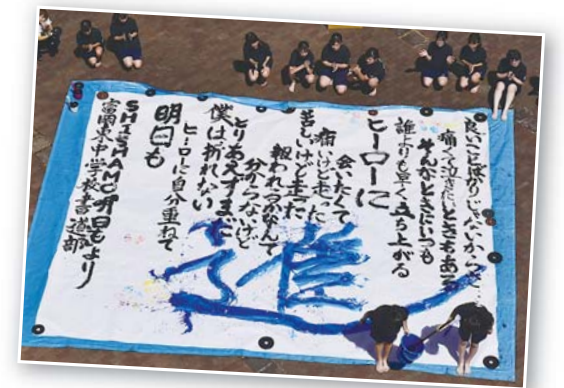 良いことばかりじゃないからさ
痛くて泣きたいときもある
そんなときにいつも
誰よりも早く立ち上がる
ヒーローに
会いたくて
痛いけど走った
苦しいけど走った
報われるかなんて
分からないけど
とりあえずまだ
僕は折れない
ヒーローに自分重ねて
明日も
SHISHAMO 明日もより
富岡東中学校書道部
進